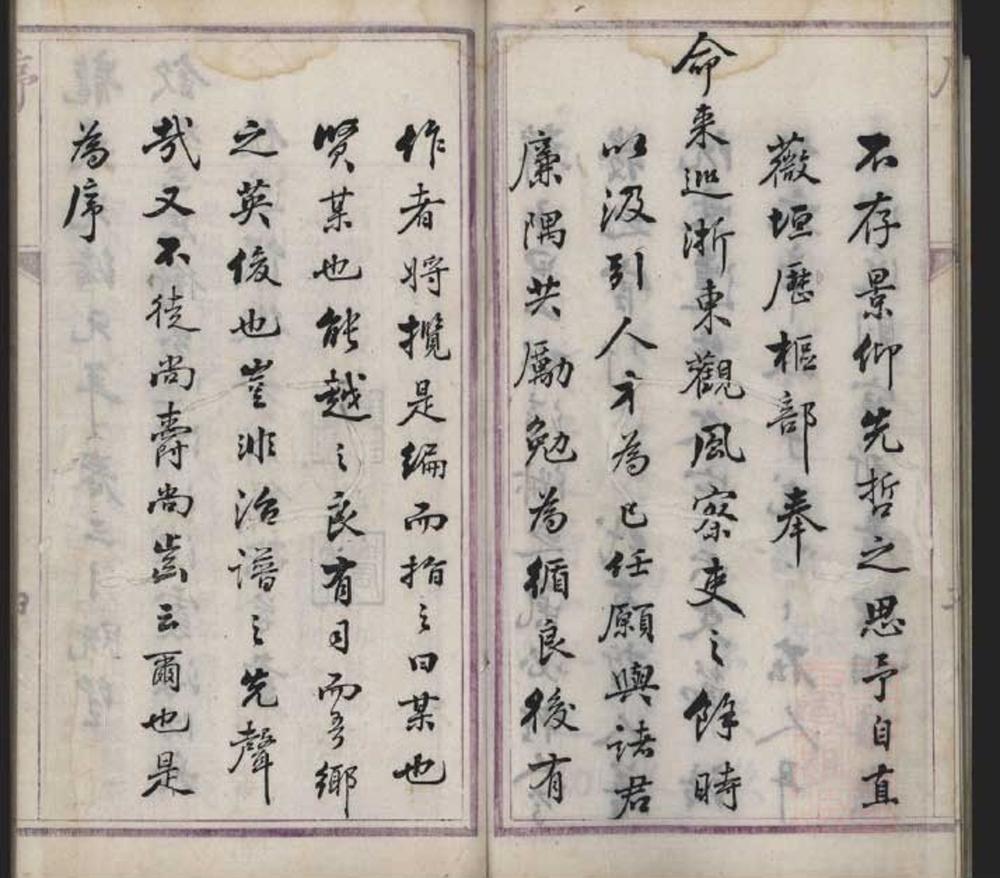 不存景仰先哲之思予自直
薇垣歷樞部奉
命来巡浙東觀風察吏之餘時
以汲引人才為己任願與諸君
廉隅共勵勉為循良後有
作者將攬是編而指之曰某也
賢某也能越之良有司而吾鄉
之英俊也豈非治譜之先聲
哉又不徒尚壽尚齒云爾也是
為序